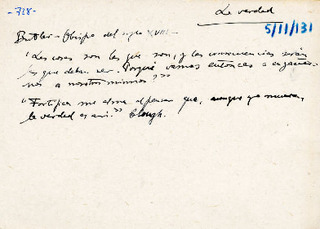 -728-
La verdad
5/11/131
Butler - Obispo del siglo XVIII -
"Las cosas son las que son, y las consecuencias serán
las que deben ser. Porqué vamos entonces a engañar-
nos a nosotros mismos?"
"Fortifica mi alma el pensar que, aunque yo muera,
la verdad es así." Clough.